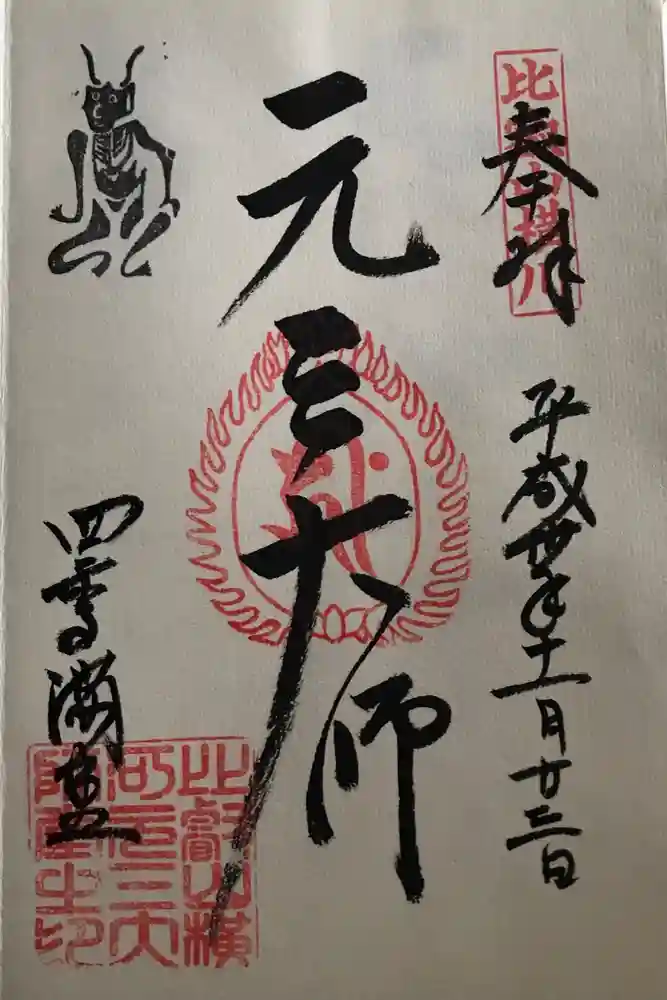 比叡山横川
奉拝
平成卅年十一月廿三日
元三大師
四季講堂
比叡山横
川元三大
師堂之印